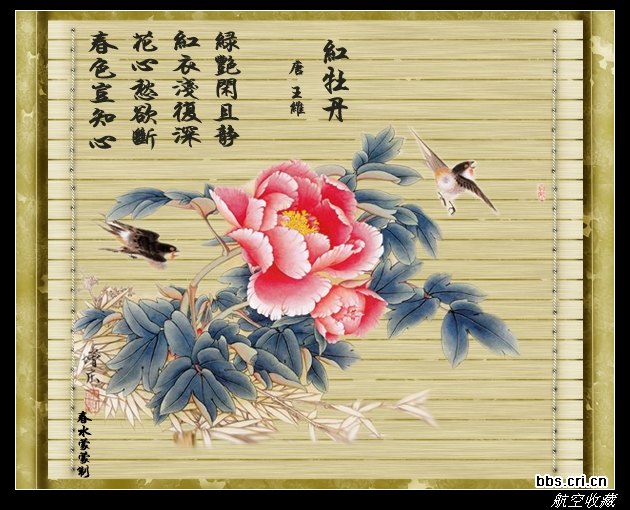 紅牡丹
唐 王維
緑艷閑且静
紅衣淺復深
花心愁欲斷
春色豈知心
春水蒙蒙制
bbs.cri.cn
航空收藏